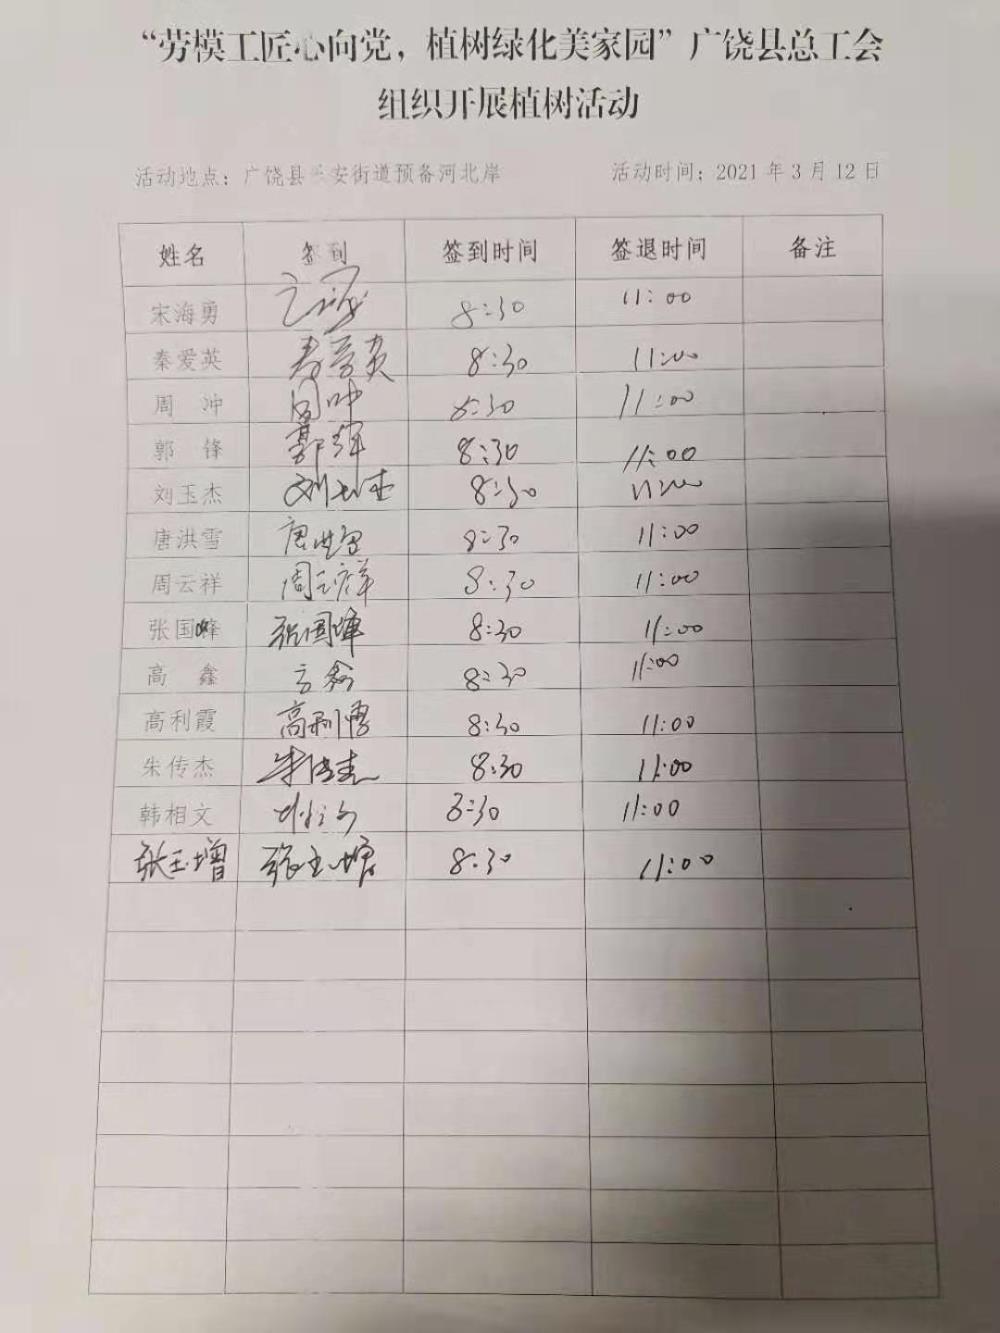 “劳模工匠心向党，植树绿化美家园”广饶县总工会
组织开展植树活动
活动地点：广饶县 安街道预备河北岸 活动时间：2021年3月12日
姓名 签到 签到时间 签退时间 备注
宋海勇 8:30 11:00
秦爱英 秦爱英 8:30 11:00
周 冲 周冲 8:30 11:00
郭 锋 8:30 11:00
刘玉杰 刘玉杰 8:30 11:00
唐洪雪 唐洪雪 8:30 11:00
周云祥 周云祥 8:30 11:00
张国峰 张国 8:30 11:00
高 鑫 高鑫 8:30 11:00
高利霞 高利霞 8:30 11:00
朱传杰 朱传杰 8:30 11:00
韩相文 8:30 11:00
张玉增 张玉增 8:30 11:00